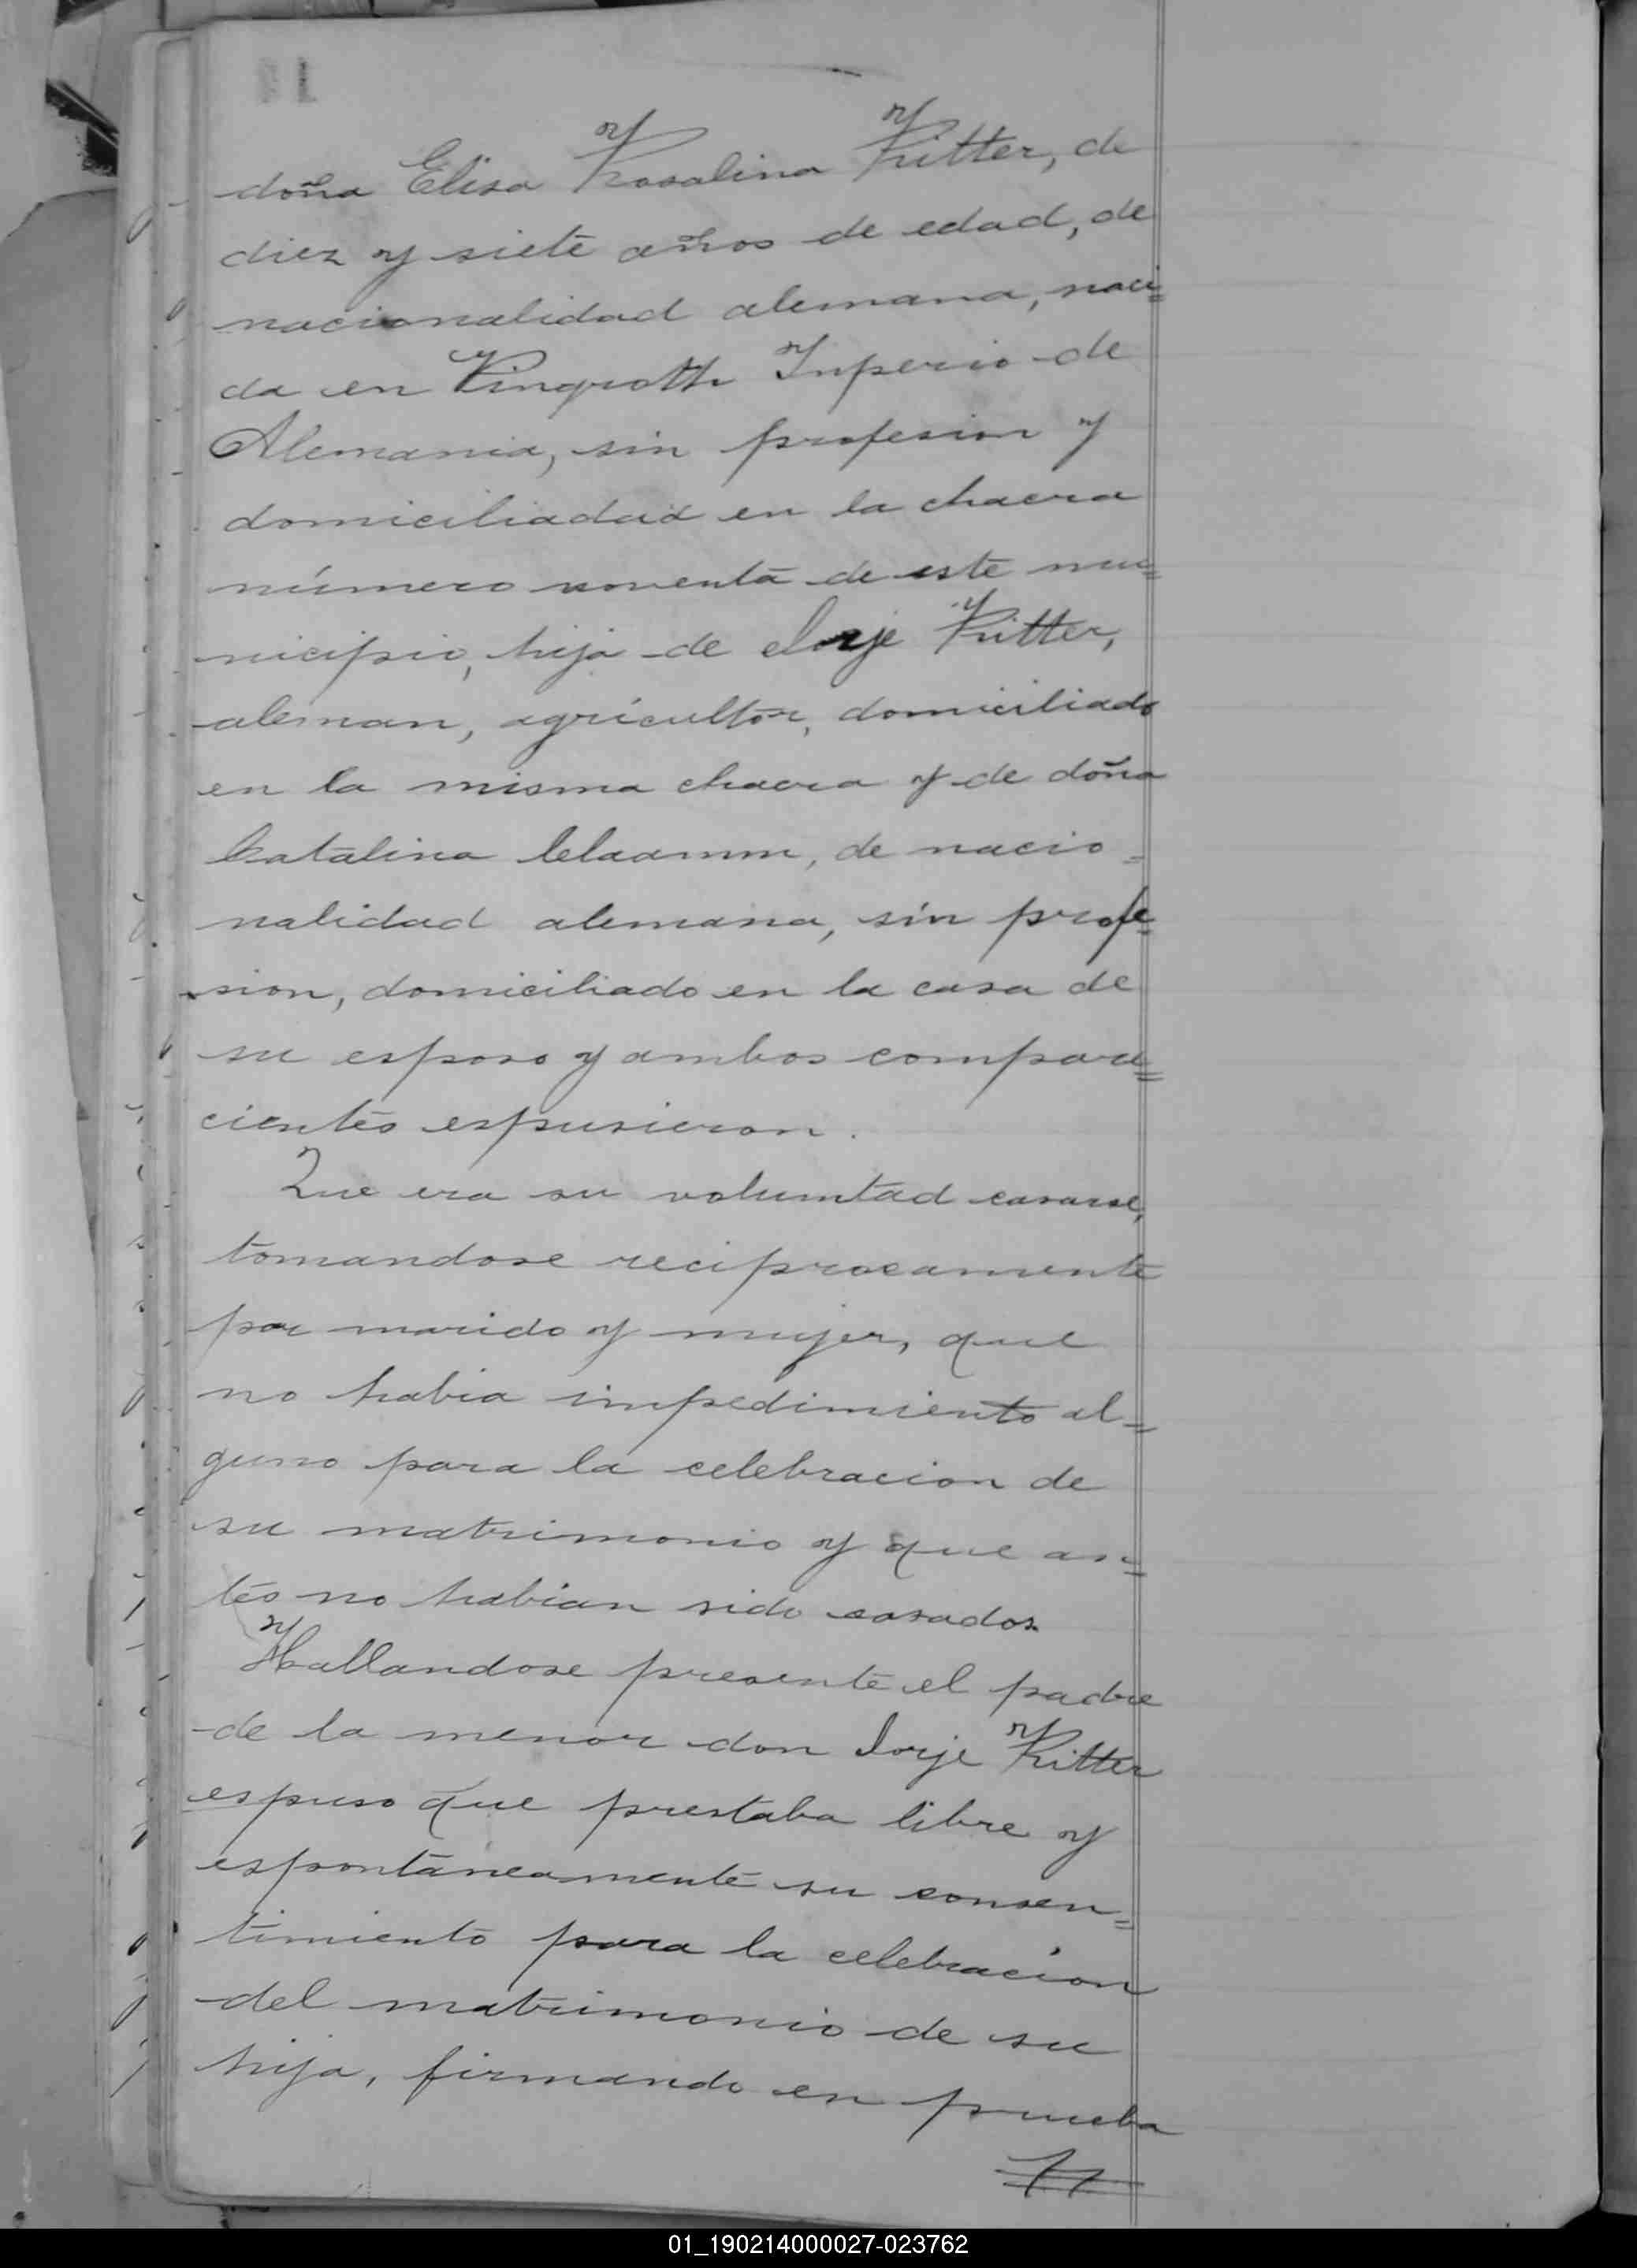 doña Elisa Rosalina Ritter, de
diez y siete años de edad, de
nacionalidad alemana, naci=
da en Ringroth Inperio de
Alemania, sin profesion y
domiciliada en la chacra
número noventa de este mu=
nicipio, hija de Jorje Ritter,
aleman, agricultor, domiciliado
en la misma chacra y de doña
Catalina Claamm, de nacio=
nalidad alemana, sin profe=
sion, domiciliado en la casa de
su esposo y ambos compare=
cientes espusieron.
Que era su voluntad casarse,
tomandose reciprocamente
por marido y mujer, que
no habia impedimiento al=
guno para la celebracion de
su matrimonio y que an=
tes no habian sido casados.
Hallandose presente el padre
de la menor don Jorje Ritter
espuso que prestaba libre y
espontáneamente su consen=
timiento para la celebracion
del matrimonio de su
hija, firmando en prueba
01_190214000027-023762